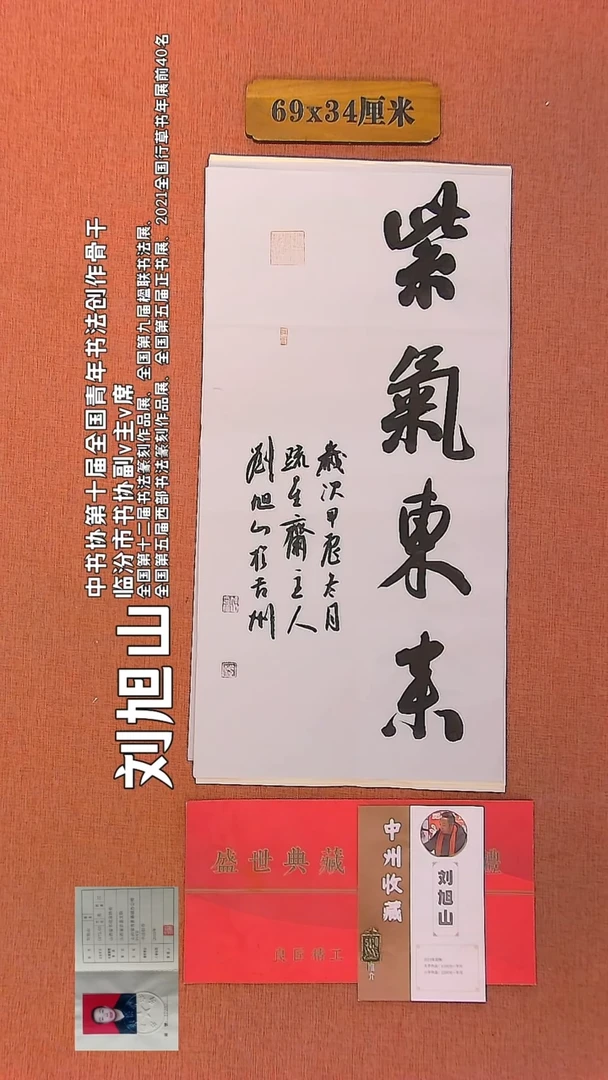 69x34厘米
紫氣東来
歲次甲辰冬月
疏至齋主人
劉旭山於古州
中书协第十届全国青年书法创作骨干
临汾市书协副v主v席
全国第十二届书法篆刻作品展、全国第九届楹联书法展、
全国第五届西部书法篆刻作品展、全国第五届正书展、2021全国行草书年展前40名
刘旭山
盛世典藏
良匠精工
中州收藏
刘旭山